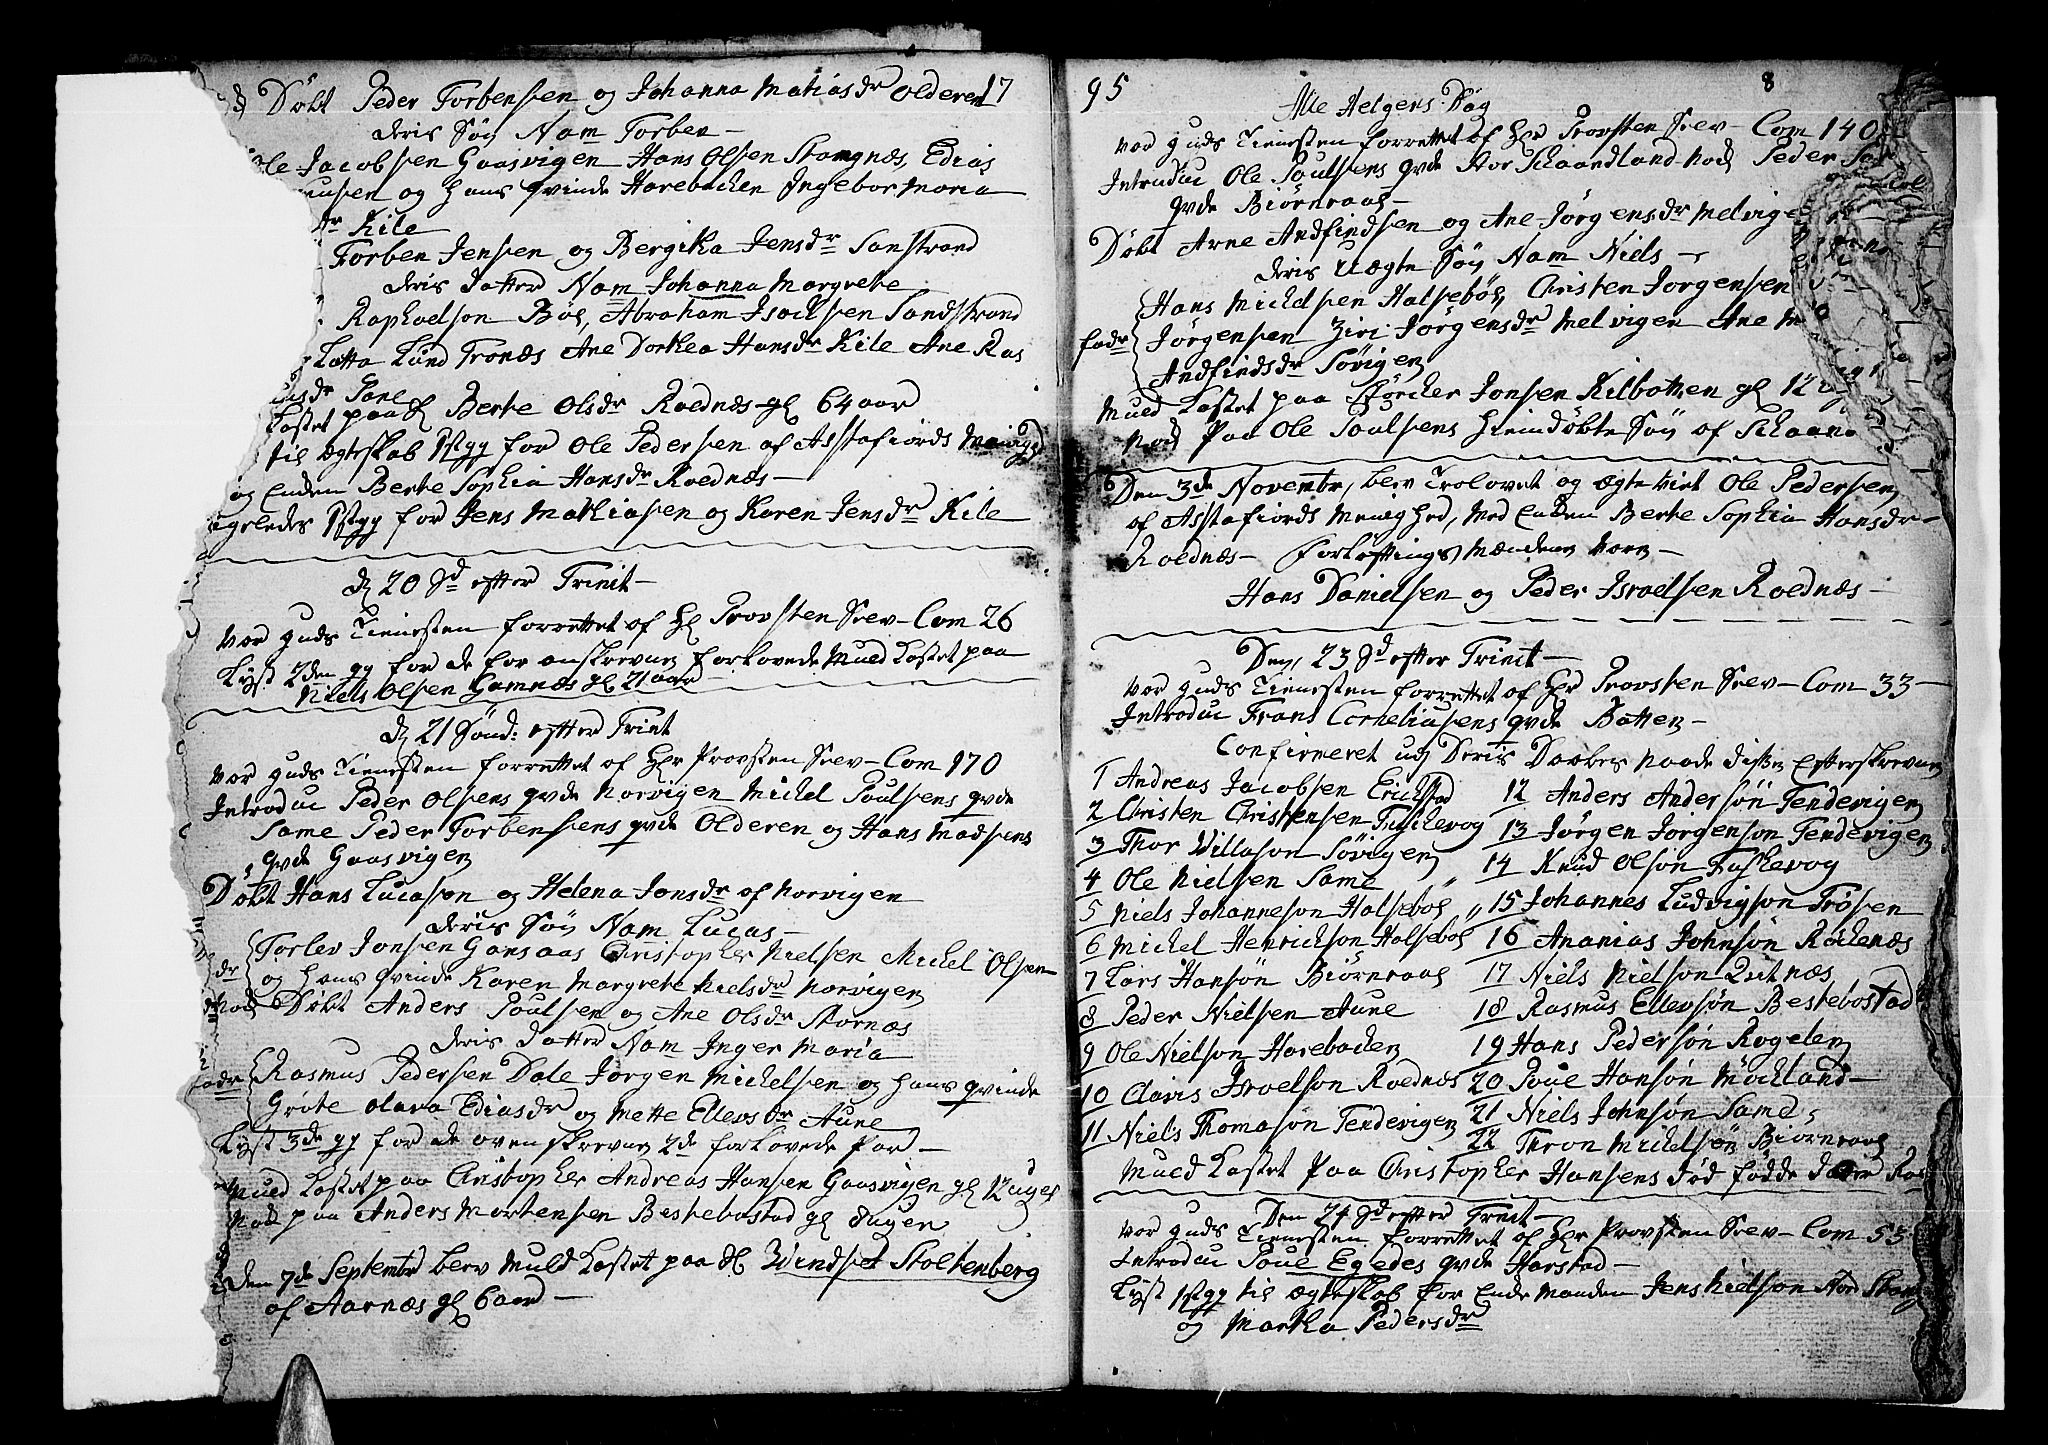 Døbt Peder Torbensen og Johanna Matiasdr Olderen 17
deris Søn Nam Torben
Ole Jacobsen Gaasvigen Hans Olsen Stangnæs, Edias
ensen og Hans qvinde Harebacken Ingebor Maria
dr Kile
Torben Jensen og Bergitha Jensdr Sanstrand
deris datter Nam Johanna Margrete
Raphaelson Böe, Abraham Isachsen Sandstrand
Lotta Lund Tronæs Ane Dorthea Hansdr Kile Ane Ras
musdr Same
Kastet paa Berte Olsdr Roednæs gl 64 aar
til ægteskab 1stgg for Ole Pedersen af Astafiords Menigh
og Enden Berte Sophia Hansdr Roednæs
ligeledes 1stgg for Jens Mathiasen og Karen Jensdr Kile
d 20 Sd efter Trinit
Vor guds Tienesten forrettet af Hr Provsten Srev Com 26
Lyst 2den gg for de for anskrevne forlovede Mued Kastet paa
Niels Olsen Gamnæs gl 21 aar
d 21 Sønd: efter Trinit
Vor guds Tienesten forrettet af Hr Provsten Srev Com 170
Introduc Peder Olsens qvde Norvigen Michel Poulsens qvde
Same Peder Torbensens qvde Olderen og Hans Madsens
qvde Gaasvigen
Døbt Hans Lucason og Helena Jonsdr af Norvigen
deris Søn Nam Lucas
Torlev Jonsen Gansaas Christopher Nielsen Michel Olsen
og Hans qvinde Karen Margrete Nielsdr Norvigen
Nok Døbt Anders Poulsen og Ane Olsdr Stornæs
deris datter Nam Inger Maria
fadr Rasmus Pedersen Dale Jørgen Michelsen og Hans qvinde
Grøte Olava Ediasdr og Mette Ellevsdr Aune
Lyst 3de gg for de ovenskrevne 2de forlovede Par
Mued Kastet paa Christopher Andreas Hansen Gaasvigen gl 12 uger
Nok paa Anders Mortensen Beskebostad gl 8 uger
Den 7de Septembr blev Muld Kastet paa Windset Stoltenberg
af Aarnæs gl 6 aar
95 8
Alle Helgens Dag
Vor guds Tienesten forrettet af Hr Provsten Srev Com 140
Introduc Ole Poulsens qvde Stor Schaandland Nok Peder
qvde Biørnraae
Døbt Arne Andfindsen og Ane Jørgensdr Melvigen
deris Uægte Søn Nam Niels
Hans Michelsen Halsebøe, Christen Jørgensen
fadr Jørgensen Ziri Jørgensdr Melvigen Ane
Andfindsdr Søvigen
Mued Kastet paa Jonsen Kilbotten gl 12
Nok Paa Ole Poulsens Hiemdøbte Søn af Schaan
Den 3de Novembr, blev Trolovet og ægte viet Ole Pedersen
af Astafiords Menighed, med Enden Berte Sophia Hansdr
Roednæs Forløftings Mændene vare
Hans Danielsen og Peder Israelsen Roednæs
Den 23 Sd efter Trinit
Vor guds Tienesten forrettet af Hr Provsten Srev Com 33
Introduc Frans Corneliusens qvde Botten
Confirmeret udj Deris Daabes Naade disse Efterskrevne
1 Andreas Jacobsen Erichstad
2 Christen Christensen Fuschevog
3 Thor Willason Søvigen
4 Ole Nielsen Same
5 Niels Johanneson Halseboe
6 Michel Henrichson Halseboe
7 Lars Hansøn Biørnraae
8 Peder Nielsen Aune
9 Ole Nielson Harebacken
10 Clavis Israelson Roednæs
11 Niels Thomasøn Tendevigen
12 Anders Andersøn Tendevigen
13 Jørgen Jørgenson Tendevigen
14 Knud Olsøn Fuskevog
15 Johannes Ludvigson Trøsen
16 Ananias Johnsøn Röckenæs
17 Niels Nielson Qvitnæs
18 Rasmus Ellevsøn Beskebostad
19 Hans Pedersøn Rogelen
20 Poue Hansøn Möckland
21 Niels Johnsøn Same
22 Thron Michelsøn Biørnraae
Mued Kastet Paa Christopher Hansens død fødde dater
Den 24 Sd efter Trinit
Vor guds Tienesten forrettet af Hr Provsten Srev Com 53
Introduc Poue Egedes qvde Harstad
Lyst 1stgg til ægteskab for Ende Manden Jens Nielson Nor Stang
og Martha Pedersdr